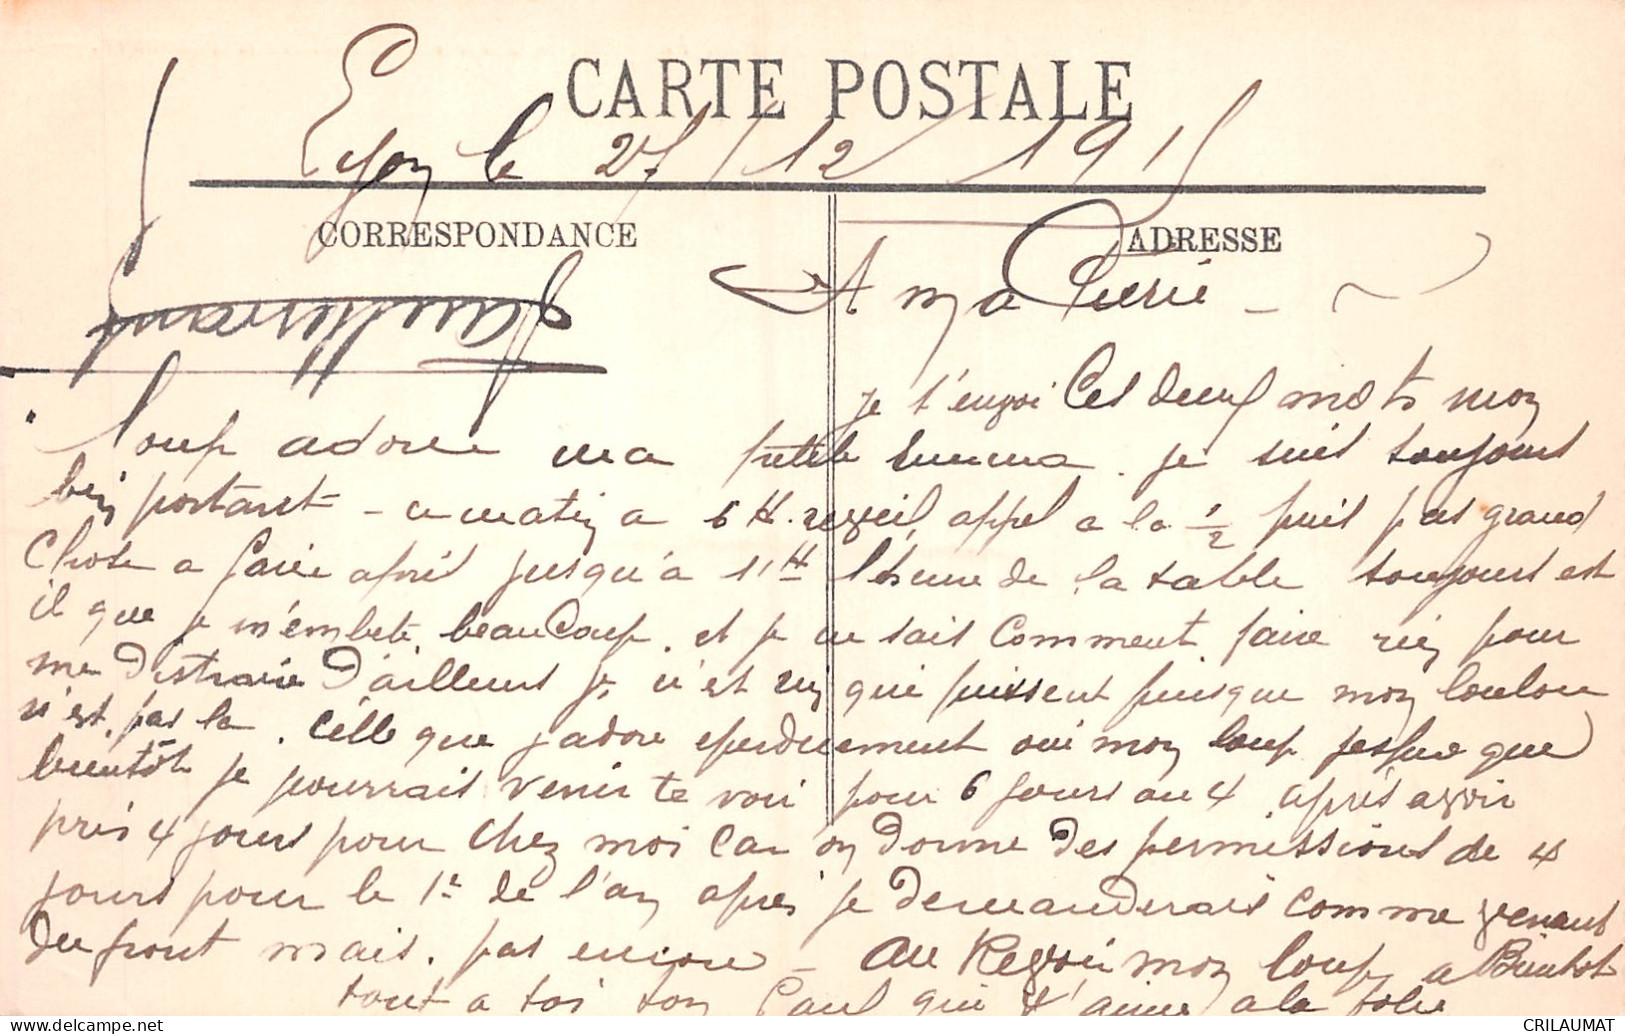 CARTE POSTALE
Lyon le 27/12/1915
CORRESPONDANCE
ADRESSE
A ma Cherie -
je t'envoi Ces deux mots mon
loup adoree ma petite Emma. je suis toujours
bien portant - ce matin a 6 H. reveil, appel a la 1/2 puis pas grand
Chose a faire après jusqu'à 11H l'heure de la table toujours est
il que je m'embete beaucoup. et je ne sais comment faire rien pour
me distraire d'ailleurs je n'est rien qui puissent puisque mon loulou
n'est pas la. Celle que j'adore eperduement oui mon loup jespere que
bientôt je pourrais venir te voir pour 6 jours ou 4 après avoir
pris 4 jours pour chez moi car on donne des permissions de 4
jours pour le 1r de l'an après je demanderais comme venant
du front mais. pas encore - Au Revoir mon loup a Bientot
tout a toi ton Paul qui t'aime a la folie
CRILAUMAT